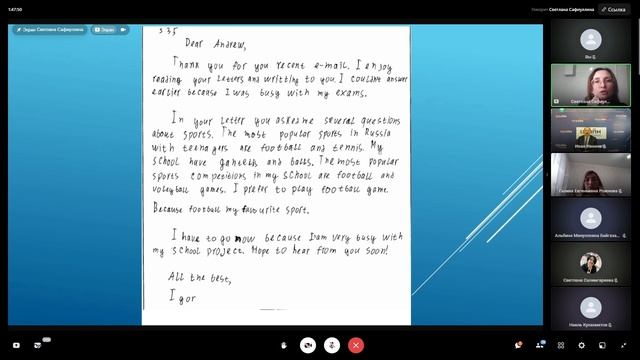 1:47:50
Говорит: Светлана Сафиуллина
Ссылка
Экран Светлана Сафиуллина
Экран
535
Dear Andrew,
Thank you for you recent e-mail. I enjoy
reading your letters and writting to you. I couldnt answer
earlier because I was busy with my exams.
In your letter you asked me several questions
about sports. The most popular sports in Russia
with teenagers are football and tennis. My
school have gantells and balls. The most popular
sports competitions in my school are football and
volleyball games. I prefer to play football game.
Because football my favourite sport.
I have to go now because I am very busy with
my school project. Hope to hear from you soon!
All the best,
Igor
Вы
Светлана Сафиул...
Галина Евгеньевна Рожнова
Альбина Минулловна Байгаза...
Светлана Салимгареева
Наиль Крпахметов